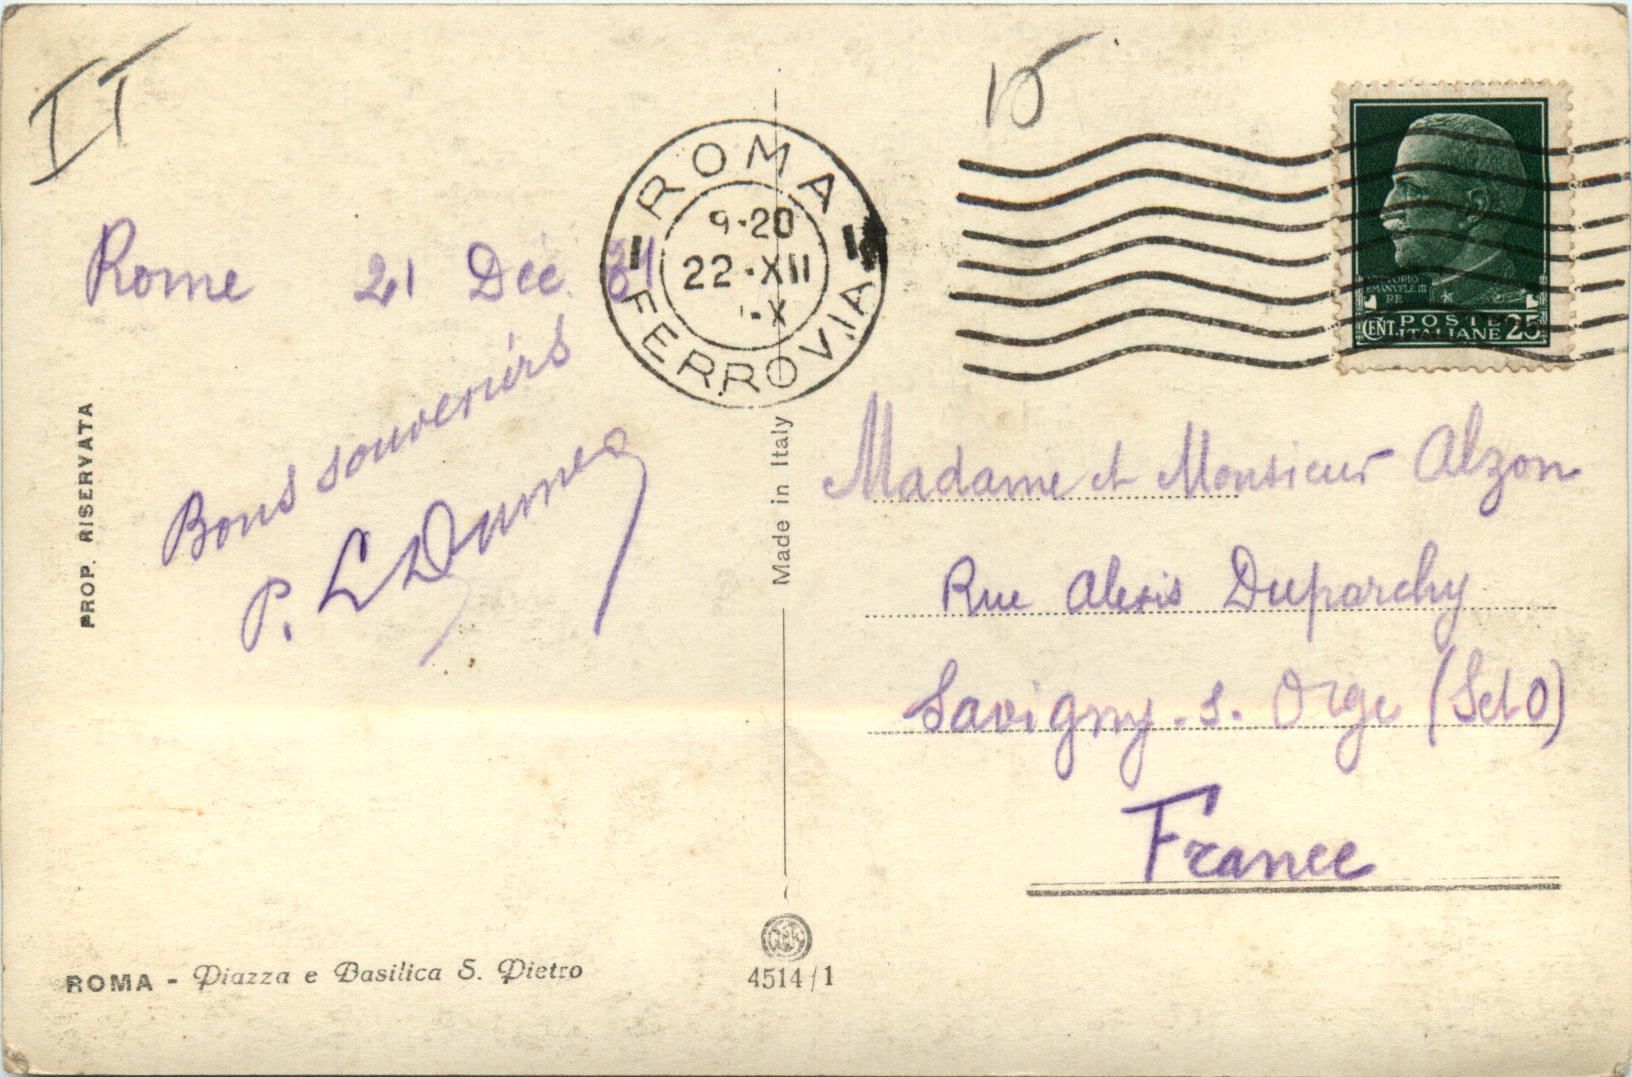 IT
15
ROMA
FERROVIA
9-20
22·XII
X
VITTORIO
EMANVELE III
RE
POSTE
ITALIANE
CENT. 25
Rome 21 Déc. 31
Bons souvenirs
P.
Madame et Monsieur Alzon
Rue Alexis Duparchy
Savigny. s. Orge (S et O)
France
PROP. RISERVATA
Made in Italy
ROMA - Piazza e Basilica S. Pietro
4514/1